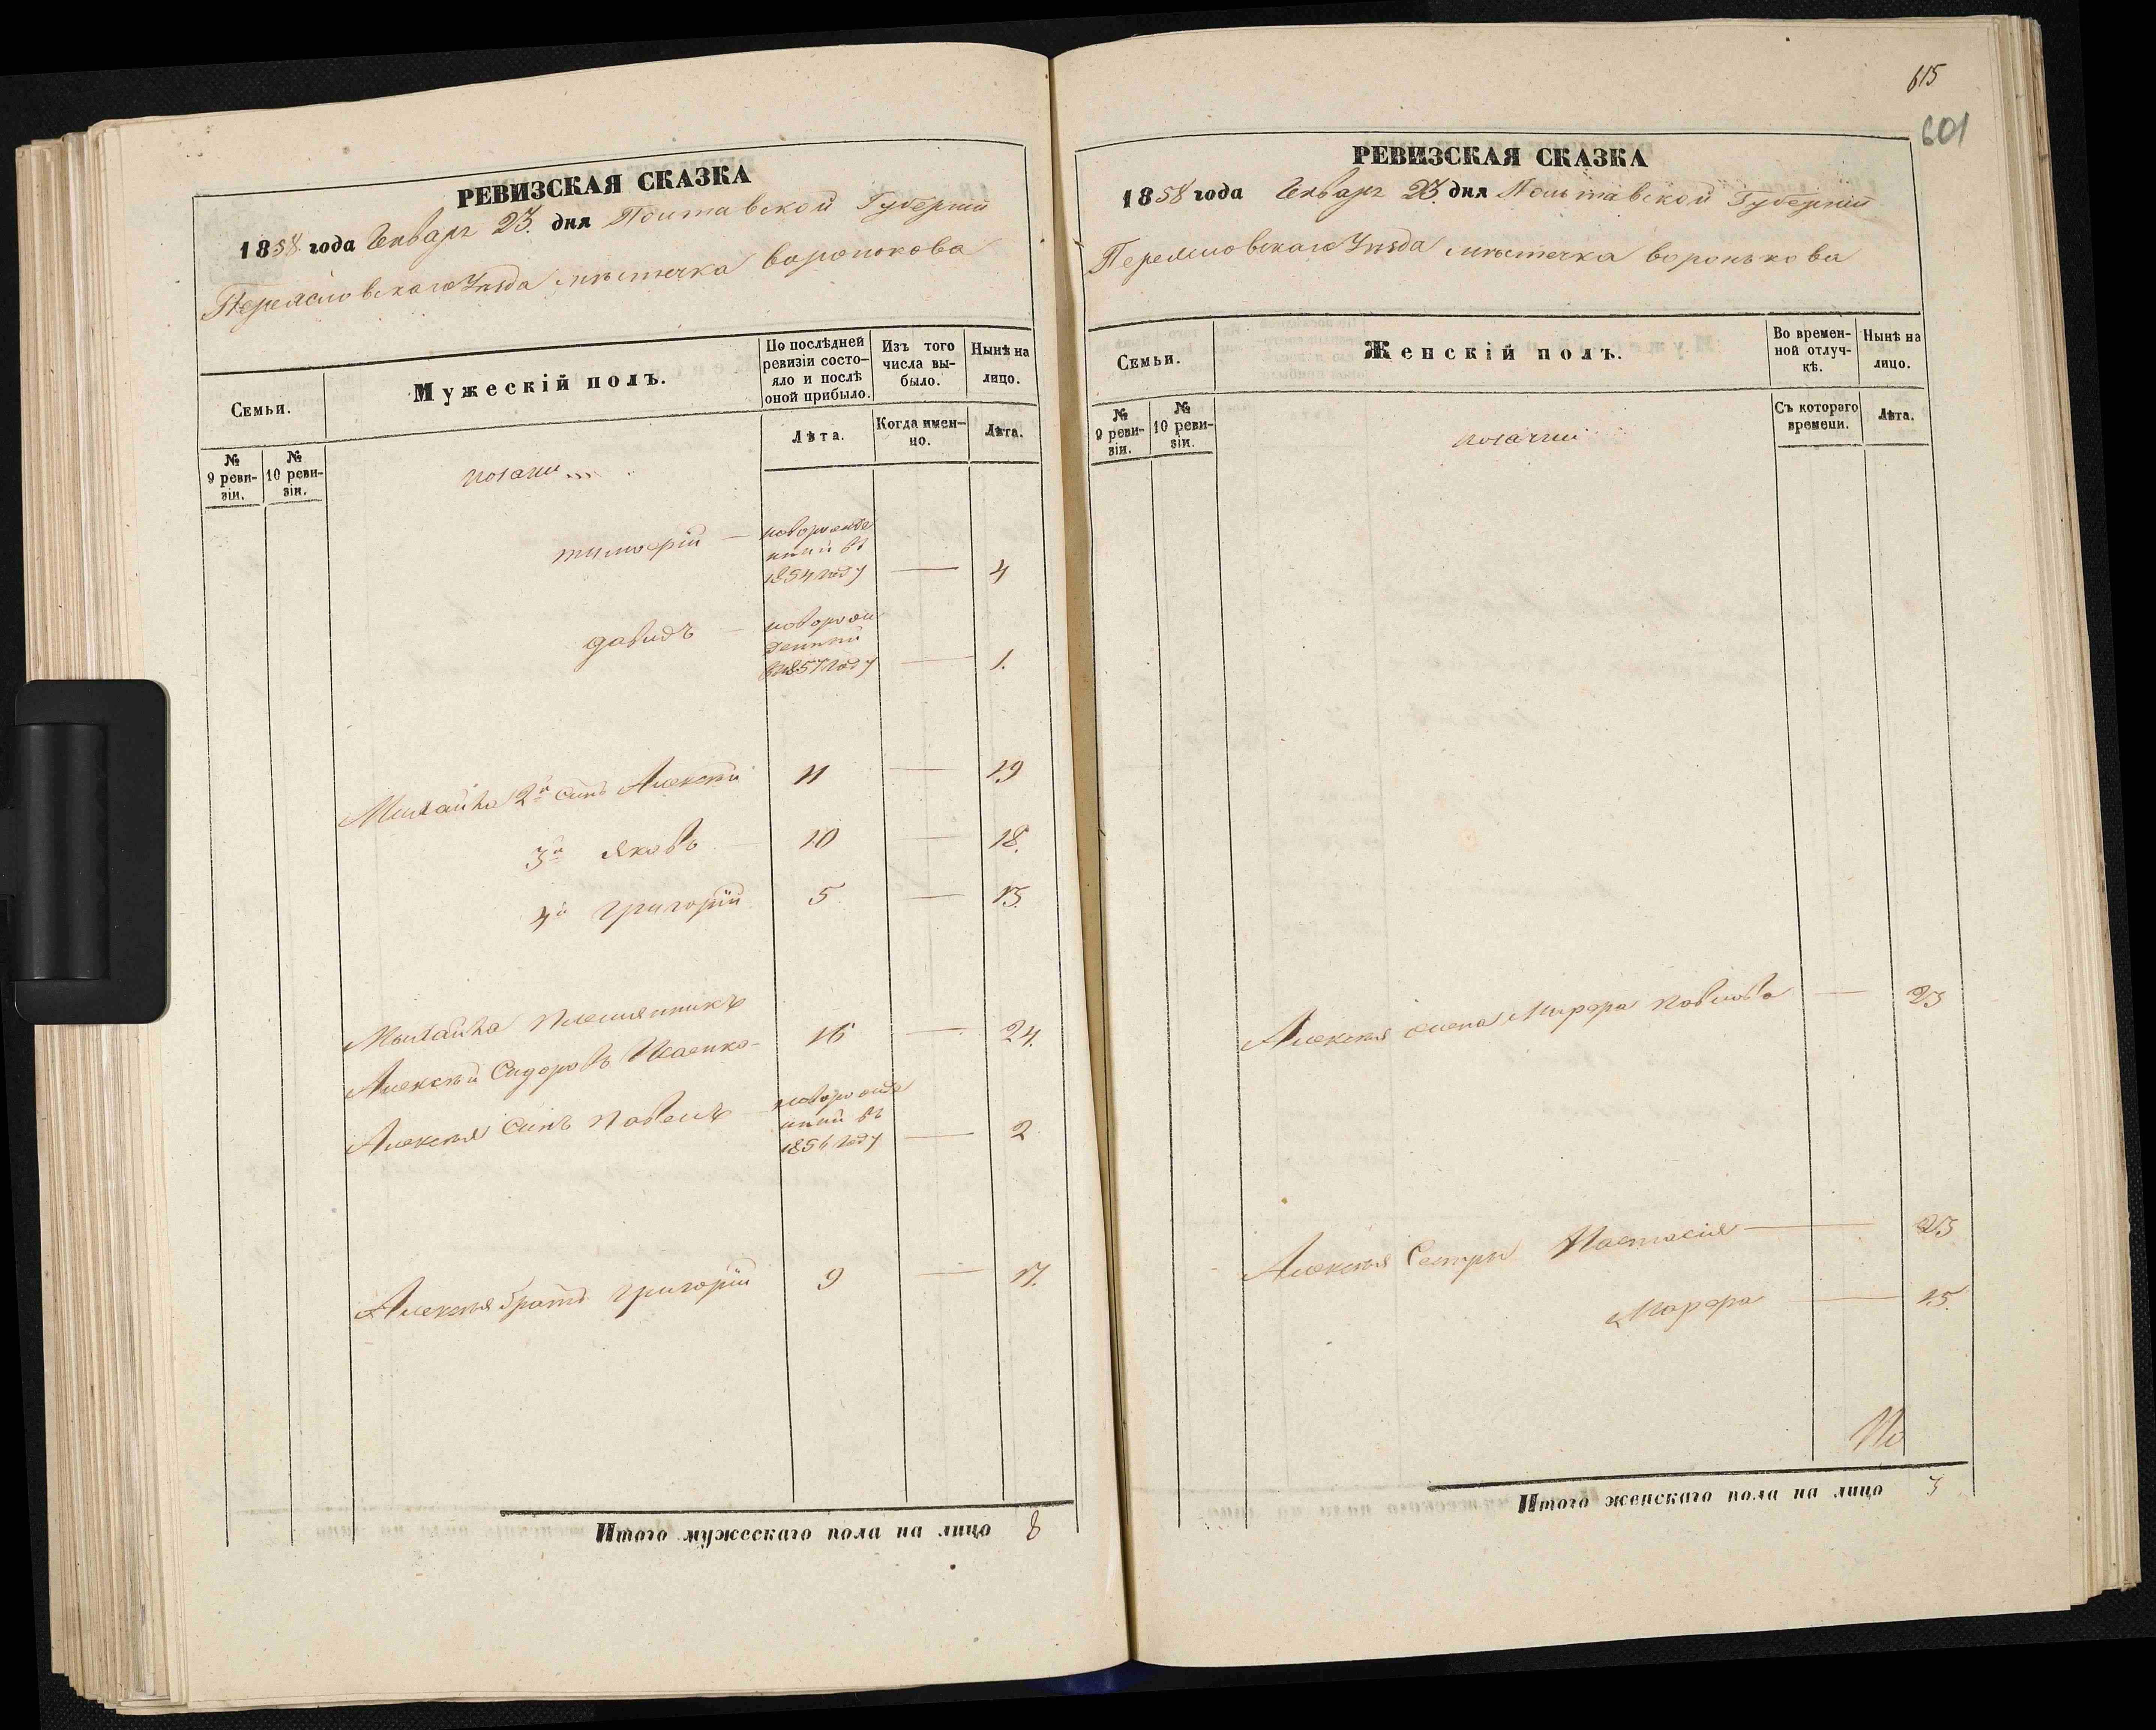 РЕВИЗСКАЯ СКАЗКА
1858 года Генваря 23. дня Полтавской Губерніи
Переясловскаго Уѣзда мѣстечка воронькова
Семьи.
Мужескій полъ.
По послѣдней ревизіи состояло и послѣ оной прибыло.
Изъ того числа выбыло.
Нынѣ на лицо.
№ 9 ревизіи.
№ 10 ревизіи.
Лѣта.
Когда именно.
Лѣта.
козаки
тимофій — новорожде
нный въ
1854 году — 4
давидъ — новорож
денный
въ 1857 году — 1.
Михайла 2й сынъ Алексѣй 11 — 19
3й яковъ 10 — 18.
4й григорій 5 — 13.
Михайла племянникъ
Алексѣй Сидоровъ 16 — 24.
Алексѣя Сынъ павелъ — новорожде
нный въ
1856 году — 2
Алексѣя братъ григорій 9 — 17.
Итого мужескаго пола на лицо 8
615
601
РЕВИЗСКАЯ СКАЗКА
1858 года Генваря 23. дня Полтавской Губерніи
Переясловскаго Уѣзда мѣстечка воронькова
Семьи.
Женскій полъ.
Во временной отлучкѣ.
Нынѣ на лицо.
№ 9 ревизіи.
№ 10 ревизіи.
Съ котораго времени.
Лѣта.
козачки
Алексѣя жена Марфа павлова — 23
Алексѣя Сестры Настасія — 23
Марфа — 15.
Итого женскаго пола на лицо 3